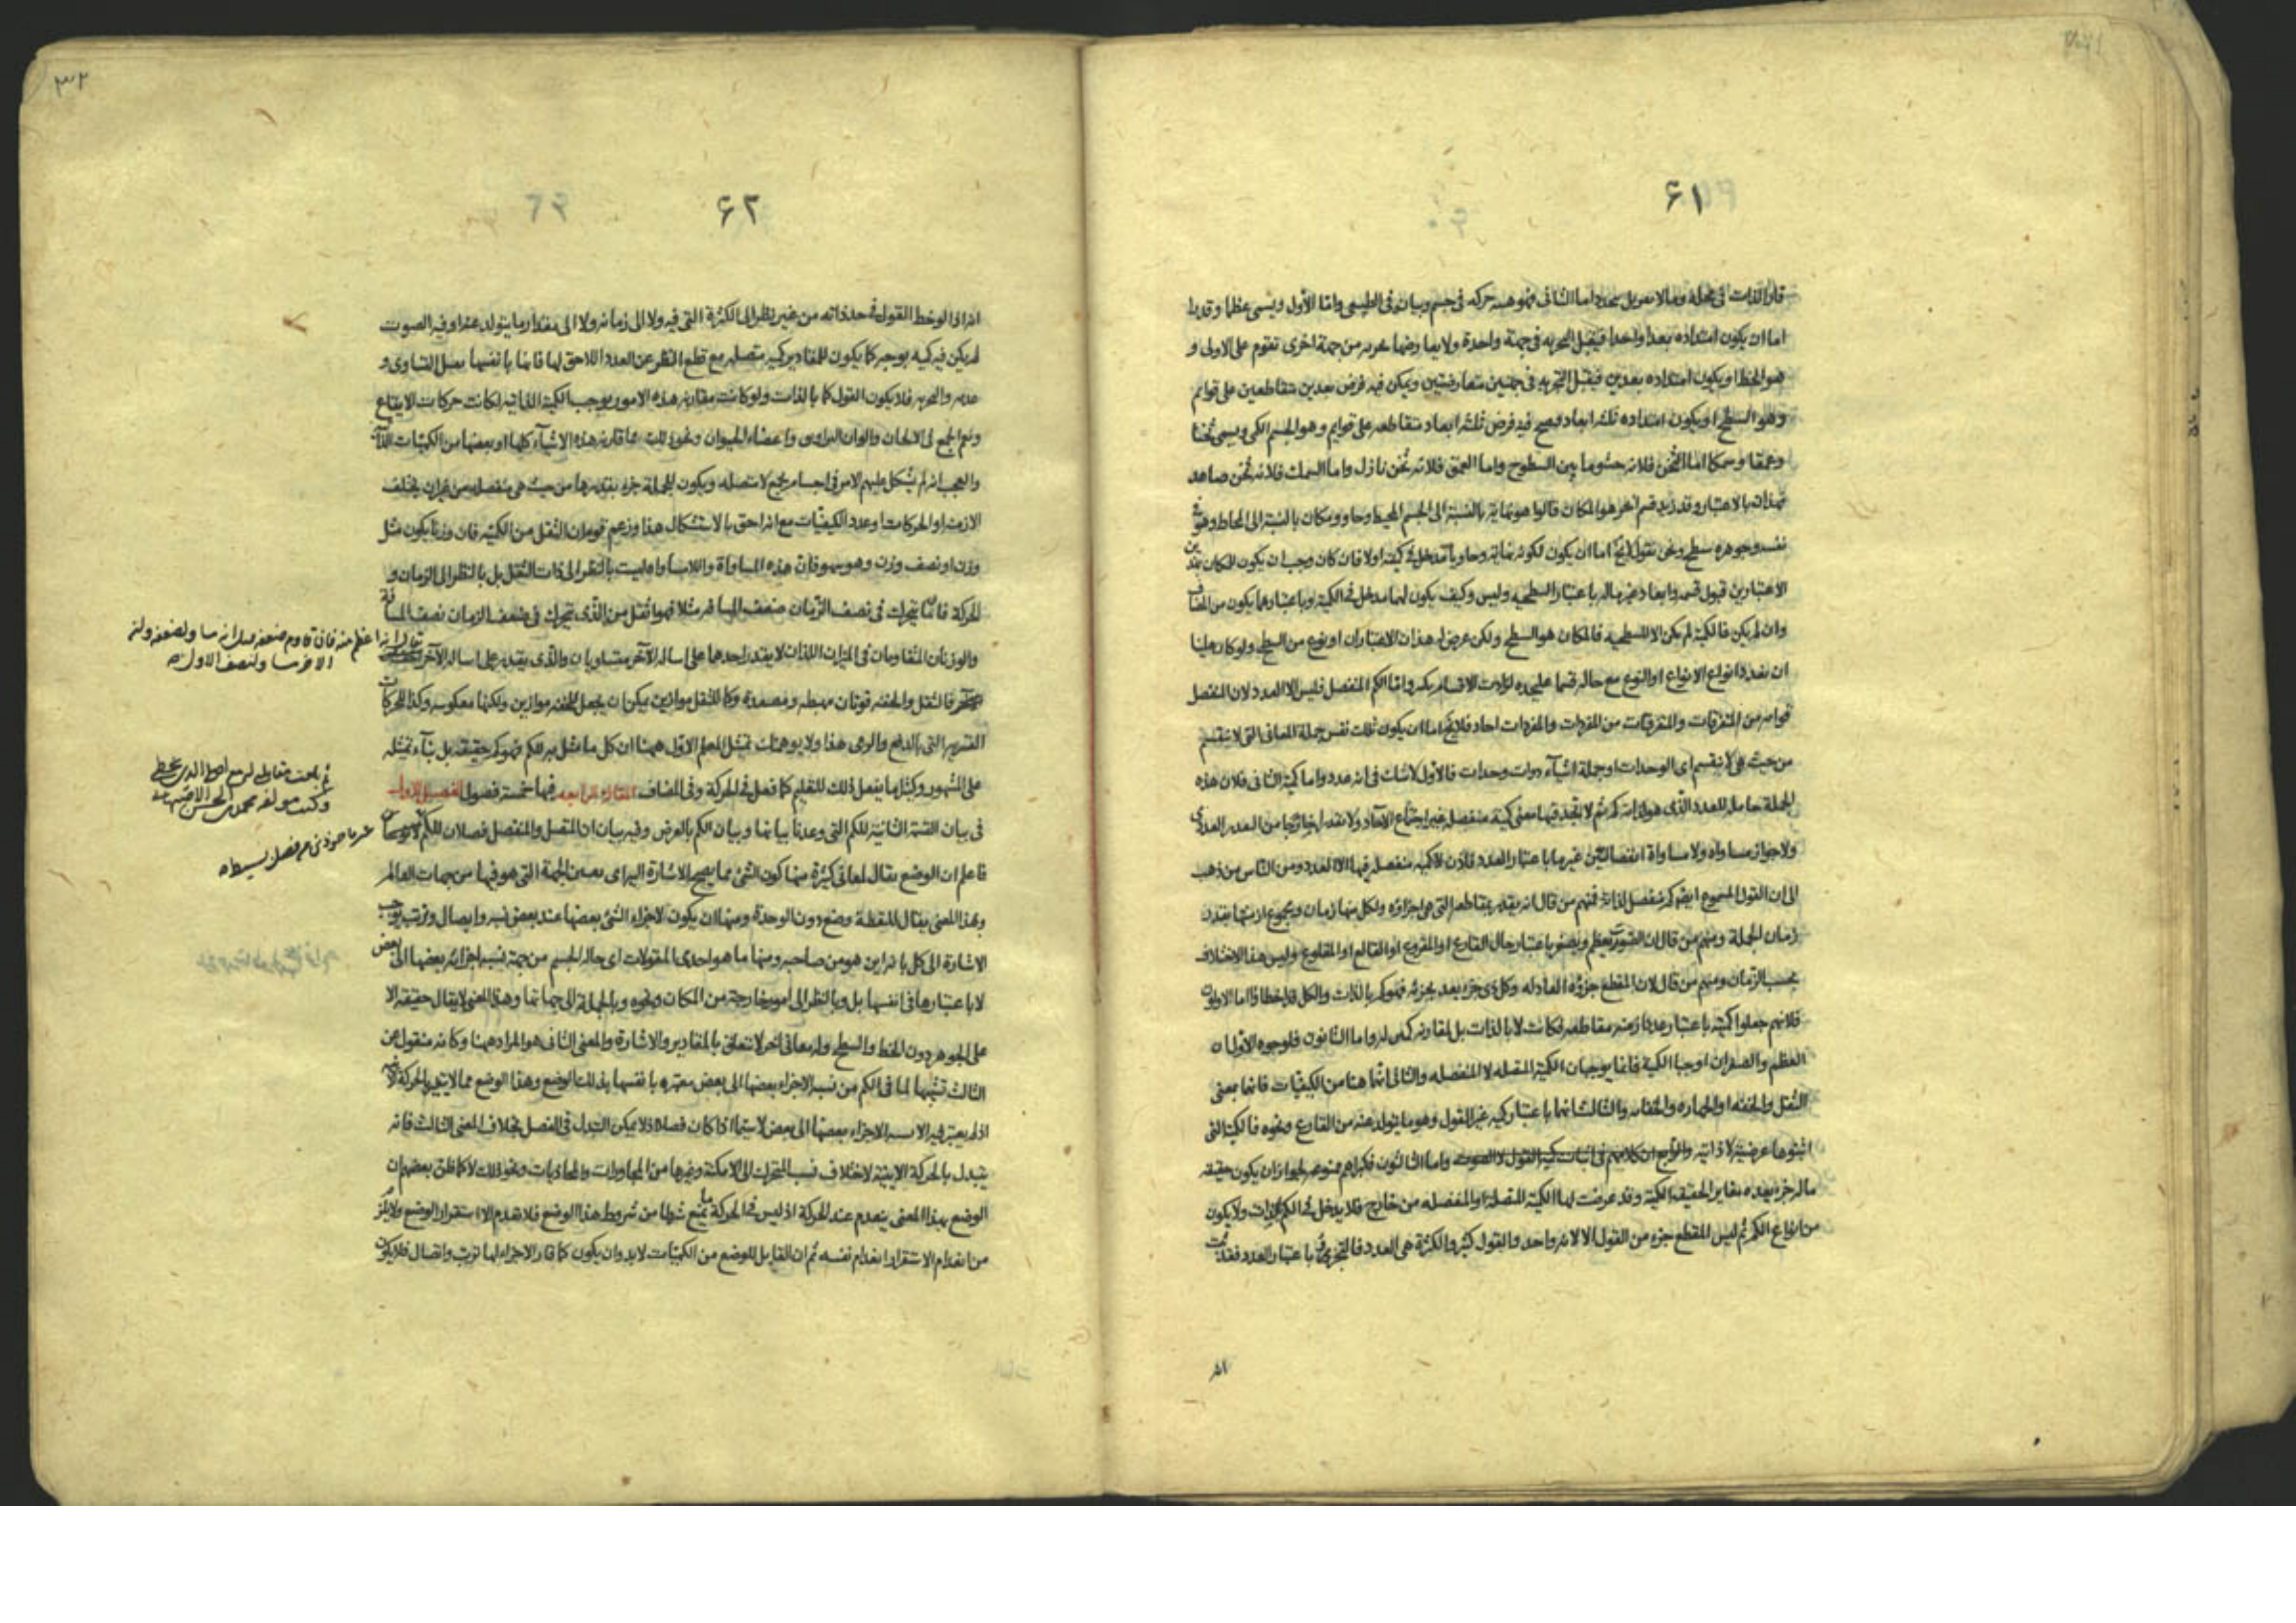 ۶۱
اما ان يكون امتداده بعدا واحدا فيقبل التجزيه فى جهة واحدة ولا يعارضها تجزيه من جهة اخرى تقوم على الاولى و
هو الخط او يكون امتداده بعدين فيقبل التجزيه فى جهتين متعارضتين ويمكن فيه فرض بعدين متقاطعين على قوايم
وهو السطح او يكون امتداده ثلثه ابعاد فيصح فيه فرض ثلثه ابعاد متقاطعه على قوايم وهو الجسم الكمى ويسمى ثخنا
وعمقا وسمكا اما الثخن فلانه حشو ما بين السطوح واما العمق فلانه ثخن نازل واما السمك فلانه ثخن صاعد
فهذان بالاعتبار وقد زيد قسم اخر هو المكان قالوا هو نهاية بالنسبة الى الجسم المحيط وحاو ومكان بالنسبة الى المحاط وهو فى
نفسه وجوهره سطح ونحن نقول اما ان يكون لكونه نهاية وحاويا مدخل فى كميته او لا فان كان وجب ان يكون للمكان
وان لم يكن فالكمية لم يكن الا للسطحيه فالمكان هو السطح ولكن عرض له هذان الاعتباران او نوع من السطح ولو كان علينا
ان نعدد انواع الانواع او النوع مع حاله قسما عليحده لزادت الاقسام بكثير واما الكم المنفصل فليس الا العدد لان المنفصل
قوامه من المتفرقات والمتفرقات من المفردات والمفردات احاد فلا يخ اما ان يكون تلك نفس جملة المعانى التى لا تنقسم
من حيث هى لا تنقسم اى الوحدات او جملة اشياء ذوات وحدات فالاول لا شك فى انه عدد واما كمية الثانى فلان هذه
الجملة حاملة للعدد الذى هو لذاته كم ثم لا تجد فيها معنى كمية منفصله غير اجتماع الآحاد
ولا جواز مساواه ولا مساواة انفصاليتين غيرها باعتبار العدد فاذن لا كميه منفصله فيها الا العدد ومن الناس من ذهب
الى ان القول المسموع ايضا كم منفصل لذاته فمنهم من قال انه يقدر بمقاطعه التى هى اجزاؤه ولكل منها زمان ومجموع ازمنتها يقدر
زمان الجملة ومنهم من قال ان الصوت يعظم ويصغر باعتبار حال القارع او المقروع او القالع او المقلوع وليس هذا الاختلاف
بحسب الزمان ومنهم من قال لان المقطع جزؤه العادله وكل ذى جزء يعد بجزئه فهو كم بالذات والكل قد اخطاؤا اما الاولون
فلانهم جعلوا كميته باعتبار عدد ازمنه مقاطعه فكانت لا بالذات بل لمقارنه كمى له واما الثانون فلوجوه الاول ان
العظم والصغر ان اوجبا الكمية فانما يوجبان الكمية المتصله لا المنفصله والثانى انما هما من الكيفيات فانهما بمعنى
الثقل والخفه او الجهاره والخفاء والثالث انهما باعتبار كميه غير القول وهو ما يتولد عنه من القارع ونحوه فالكمية التى
اثبتوها عرضية لا ذاتيه والرابع ان كلامهم فى اثبات كمية القول لا الصوت واما الثالثون فكبراهم ممنوعه لجواز ان يكون حقيقة
ماله جزء يعده مغاير الحقيقة الكمية وقد عرضت لها الكمية المتصلة او المنفصله من خارج فلا يدخل فى الكم بالذات ولا يكون
من انواع الكم ثم ليس المقطع جزء من القول الا لانه واحد والقول كثير والكثرة هى العدد فالتجزى باعتبار العدد فقد
انه
٣٢
۶۲
انه اذا لوحظ القول فى حد ذاته من غير نظر الى الكثرة التى فيه ولا الى زمانه ولا الى مقدار ما يتولد عنه او فيه الصوت
لم يكن فيه كميه بوجه كما يكون للمقادير كميه متصله مع قطع النظر عن العدد اللاحق لها فانها بانفسها تقبل التساوى و
عدمه والتجزيه فلا يكون القول كما بالذات ولو كانت مقارنه هذه الامور يوجب الكمية الذاتيه لكانت حركات الايقاع
ونغم الجمع فى الالحان والوان المرائى واعضاء الحيوان ونحو ذلك مما قارنه هذه الاشيآء كلها او بعضها من الكميات
والعجب انه لم يشكل عليهم الامر فى اجسام يجمع لا متصله ويكون للجملة جزء يقدرها من حيث هى منفصله من غير ان يختلف
الازمنه او الحركات او عدد الكيفيات مع انه احق بالاستشكال هذا وزعم قوم ان الثقل من الكمية فان وزنا يكون مثل
وزن او نصف وزن وهو سهو فان هذه المساواة واللامساواة ليست بالنظر الى ذات الثقل بل بالنظر الى الزمان و
الحركة فان ما يتحرك فى نصف الزمان ضعف المسافه مثلا فهو اثقل من الذى يتحرك فى ضعف الزمان نصف المسافة
والوزنان المتقاومان فى الميزان اللذان لا يقدر احدهما على اساله الآخر متساويان والذى يقدر على اساله الآخر
فالثقل والخفه قوتان مهبطه ومصعده وكما للثقل موازين يمكن ان يجعل للخفه موازين ولكنها معكوسه وكذا الحركات
القسريه التى بالدفع والرمى هذا ولا يوهمنك تمثيل المعلم الاول ههنا ان كل ما مثل به للكم فهو كم حقيقة بل بنآء تمثيله
على المشهور وكثيرا ما يفعل ذلك للتعليم كما فعل فى الحركة وفى المضاف المقالة الرابعه فيها خمسة فصول الفصل الاول
فى بيان القسمة الثانية للكم التى وعدنا بيانها وبيان الكم بالعرض وفيه بيان ان المتصل والمنفصل فصلان للكم لا نوعان
فاعلم ان الوضع يقال لمعانى كثيرة منها كون الشئ مما يصح الاشارة اليه اى تعيين الجهة التى هو فيها من جهات العالم
وبهذا المعنى يقال للنقطة وضع دون الوحدة ومنها ان يكون لاجزاء الشئ بعضها عند بعض نسبه وايصال وترتيب يوجب
الاشارة الى كل بانه اين هو من صاحبه ومنها ما هو احدى المقولات اى حالة الجسم من جهة نسبه اجزائه بعضها الى بعض
لا باعتبارها فى انفسها بل وبالنظر الى امور خارجة من المكان ونحوه وبالجملة الى جهاتها وهذا المعنى لا يقال حقيقة الا
على الجوهر دون الخط والسطح وله معانى اخر لا تتعلق بالمقادير والاشارة والمعنى الثانى هو المراد ههنا وكانه منقول عن
الثالث تشبيها لما فى الكم من نسبه الاجزاء بعضها الى بعض معتبره بانفسها بذلك الوضع وهذا الوضع مما لا يتبدل بالحركة
اذ لم يعتبر فيه الا نسبه الاجزاء بعضها الى بعض لا سيما اذا كان فصلا اذ لا يمكن التبدل فى الفصل بخلاف المعنى الثالث فانه
يتبدل بالحركة الاينية لاختلاف نسب المتحرك الى الامكنة وغيرها من المجاورات والمحاذيات ونحو ذلك لا كما ظن بعضهم ان
الوضع بهذا المعنى ينعدم عند الحركة اذ ليس فى الحركة ما يمنع شيئا من شروط هذا الوضع فلا تعدم الا استقرار الوضع ولا يلزم
من انعدام الاستقرار انعدام نفسه ثم ان القابل للوضع من الكميات لا بد وان يكون كما قار الاجزاء لها ترتب واتصال فلا يكون